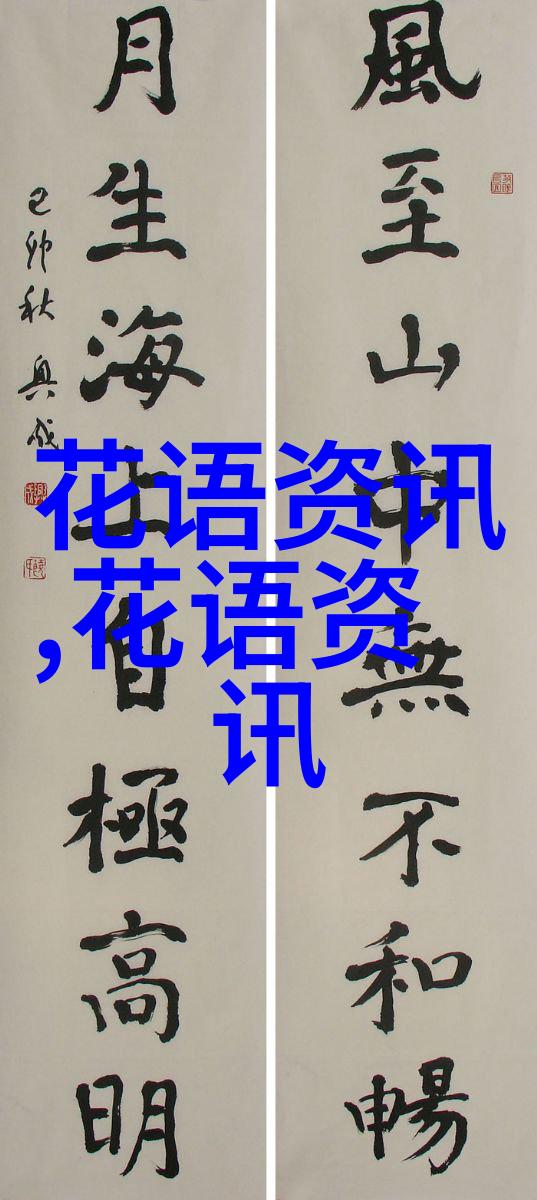 風至山中無不和暢
月生海上自極高明
己卯秋
花语资讯
,花语资
讯